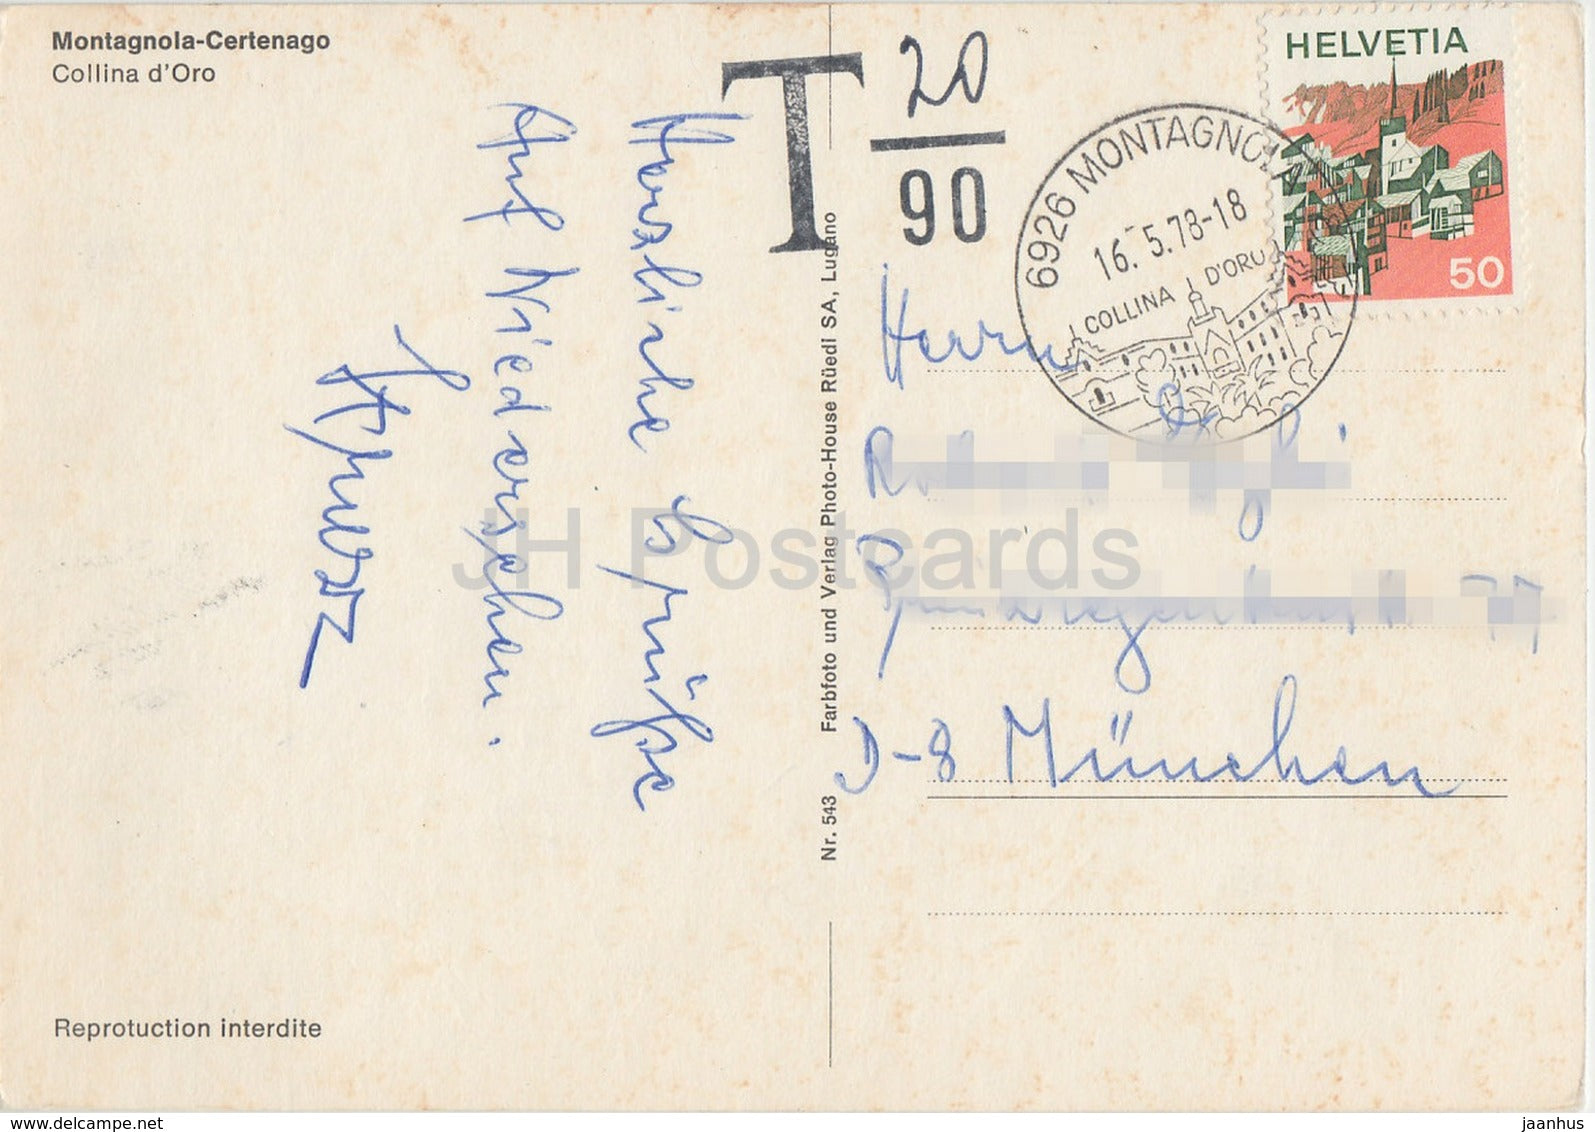 Montagnola-Certenago
Collina d'Oro
T
20
90
HELVETIA
50
6926 MONTAGNOLA
16.-5.78-18
COLLINA D'ORO
Herzliche Grüße
Auf Niederschen.
Herrn
D-8 München
Nr. 543 Farbfoto und Verlag Photo-House Rüedi SA, Lugano
JH Postcards
Reprotuction interdite
www.delcampe.net
jaanhus